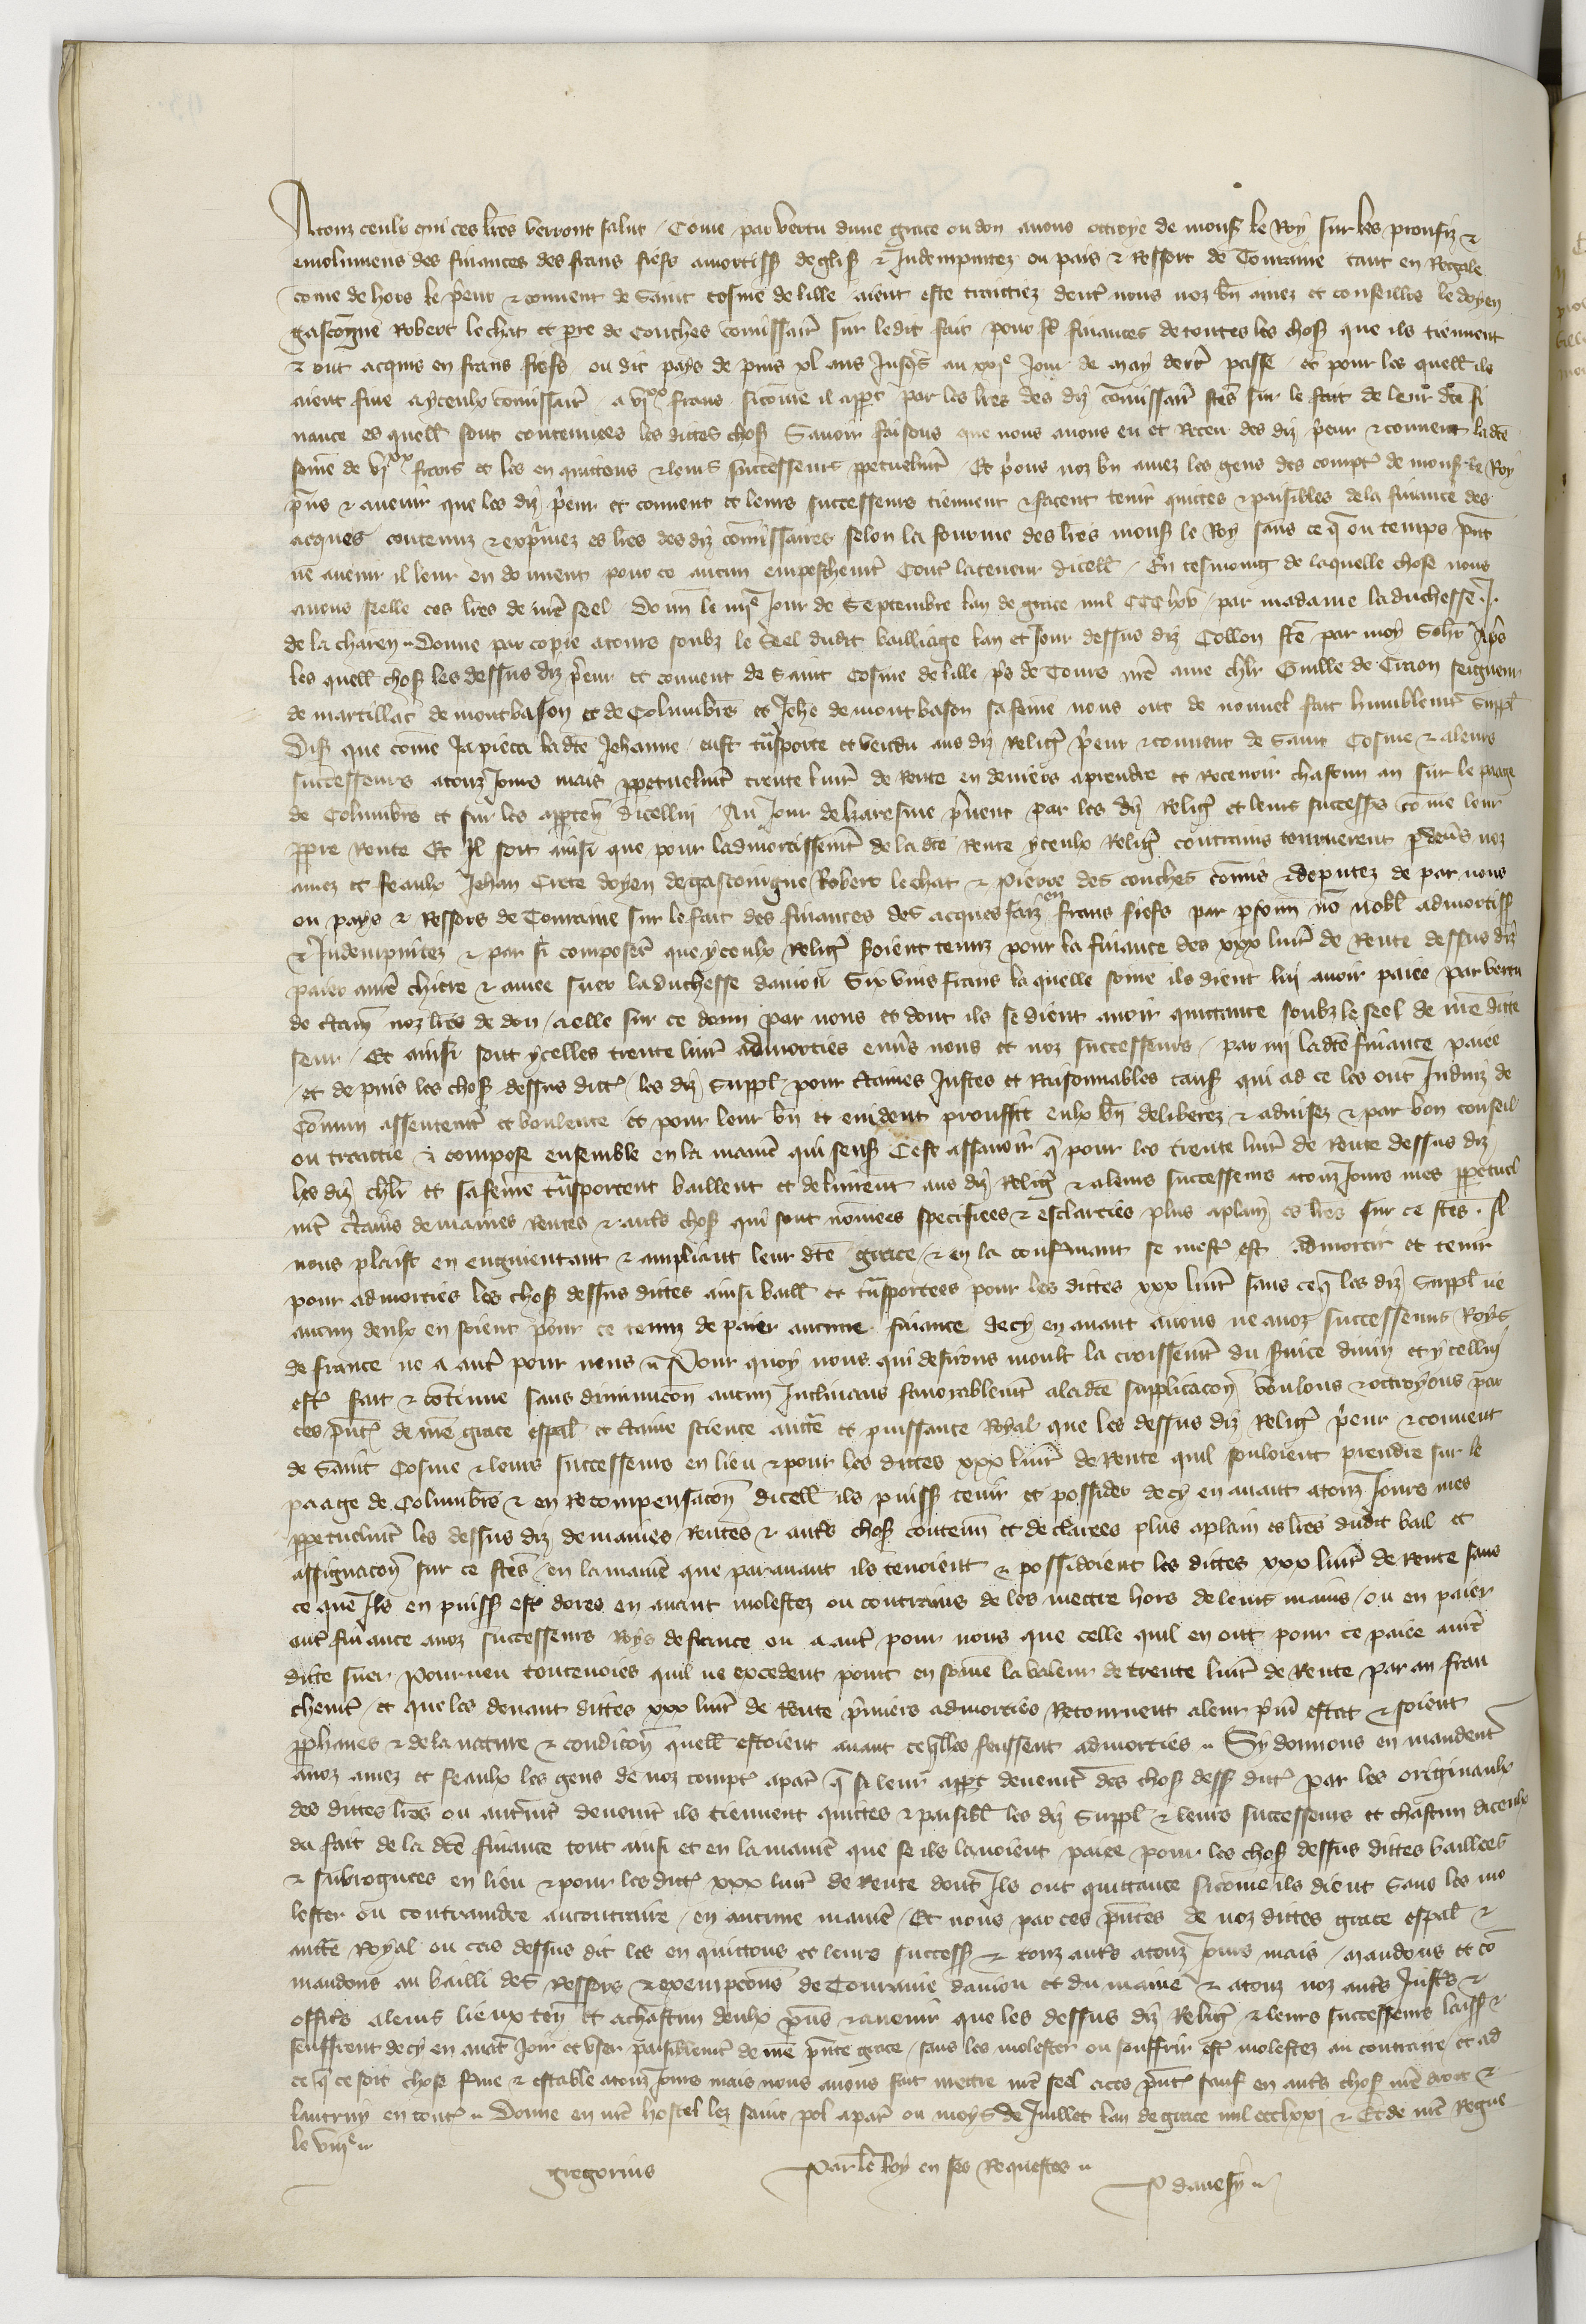 A touz ceulx qui ces lres verront salut Come par vertu dune grace ou don a nous ottroye de mons le Roy sur les proufiz &
emolumens des finances des frans fiefs amortiss deglis & Indempnitez ou pais & Ressort de Touraine tant en Regale
come de hors le peur & couvent de Saint Cosme de lille aient este traittiez dent nous noz bn amez et conseillrs le doyen
gascongne Robert le chat et pre de Couches comissair sur ledit fait pour finances de toutes les chos que ils tiennent
& ont acquis en frans fiefs ou dit pays de puis xl ans Jusqs au xxe Jour de May dert passe et pour les quell ils
aient fine a yceulx comissair a vixx frans sicome il appt par les lres des diz comissair stes sur le fait de leur dte fi
nance es quell sont contenues les dittes chos Savoir faisons que nous avons eu et Receu des diz peur & couvent la dte
some de vixx frans et les en quittons & leurs successeurs ppetuelmt Et pons noz bn amez les gens des compt de mons le Roy
pns & avenir que les diz peur et couvent et leurs successeurs tiennent & facent tenir quites & paisibles de la finance des
acques contenuz & exprimez es lres des diz comissaires selon la fourme des lres mons le Roy sans ce q ou temps pnt
ne avenir il leur en donnent pour ce aucun empeschemt Cont la teneur dicell En tesmoing de laquelle chose nous
avons seelle ces lres de nre seel Donn le iiije Jour de Septembre lan de grace mil CCC lxv par madame la duchesse J.
de la charen Donne par copie a tours soubz le Seel dudit bailliage lan et Jour dessus diz Collon fte par moy Apres
les quell chos les dessus diz peur et couvent de Saint Cosme de lille ps de Tours nre ame chlr Guille de Craon seigneur
de marcillac de montbason et de Columbrs et Jehe de montbason sa feme nous ont de nouvel fait humblemt suppl
Dis que come Ja pieca la dte Jehanne eust tnsporte et vendu aus diz Religx peur & couvent de Saint Cosme & a leurs
successeurs a touz Jours mais ppetuelmt trente livr de Rente en deniers a prendre et Recevoir chascun an sur le paage
de Columbrs et sur les apprten dicelluy Au Jour de karesme prnent par les diz Religx et leurs success come leur
ppre Rente Et Il soit ainsi que pour ladmortissemt de la dte Rente yceulx Religx contrains tournerent p devs noz
amez et feaulx Jehan Crete doyen de gascoingne Robert le chat & Pierre des couches comis & deputez de par nous
ou pays & Ressors de Touraine sur le fait des finances des acques faiz en frans fiefs par psonn no nobl admortiss
& Indempnitez & par si composer que yceulx Religx soient tenuz pour la finance des xxx livr de Rente dessus diz
paier a nre chiere & amee suer la duchesse danjou Six vins frans la quelle some ils dient lui avoir paiee par vertu
de ctain noz lres de don a elle sur ce donn par nous et dont ils se dient avoir quittance soubz le seel de nre ditte
seur Et ainsi sont ycelles trente livr admorties envs nous et noz successeurs par mi ladte finance paiee
et de puis les chos dessus dict les diz Suppl pour ctaines Justes et Raisonnables caus qui ad ce les ont Induiz de
Comun assentemt et voulente et pour leur bn et evident prouffit eulx bn deliberez & advisez & par bon conseil
on traittie & compose ensemble en la manie qui sens Cest assavoir q pour les trente livr de Rente dessus diz
les diz chlr et sa feme tnsportent baillent et delivrent aus diz Religx & a leurs successeurs a touz Jours mes ppetuel
mt ctains demaines Rentes & auts chos qui sont nomees specifiees & esclarcies plus a plain es lres sur ce ftes. Il
nous plaist en augmentant & ampliant leur dte grace & en la confmant se mest est admortir et tenir
pour admorties les chos dessus dittes ainsi baill et tnsportees pour les dittes xxx livr sans ce q les diz Suppl ne
aucun deulx en soient pour ce tenuz de paier aucune finance decy en avant a nous ne a noz successeurs Roys
de france ne a aut pour nous Pour quoy nous qui desirons moult la croissemt du svice divin et ycellui
est fait & continue sans diminucon aucun Inclinans favorablemt a ladte supplicacon voulons & ottroyons par
ces pnt de nre grace espal et ctaine science auctte et puissance Royal que les dessus diz Religx peur & couvent
de Saint Cosme & leurs successeurs en lieu & pour les dittes xxx livr de Rente quil souloient prendre sur le
paage de Columbrs & en Recompensacon dicell ils puiss tenir et possider decy en avant a touz Jours mes
ppetuelmt les dessus diz demaines Rentes & auts chos contenu et declarees plus a plain es lres dudit bail et
assignacon sur ce ftes en la manie que paravant ils tenoient & possidoient les dittes xxx livr de Rente sans
ce que Ils en puiss est dores en avant molestez ou contrains de les mettre hors de leurs mains ou en paier
aut finance a noz successeurs Roys de france ou a aut pour nous que celle quil en ont pour ce paiee a nre
ditte suer Pourveu toutevoies quil ne excedent point en some la valeur de trente livr de Rente par an fran
chemt et que les devant dittes xxx livr de Rente pmiers admorties Retournent a leur pmi estat & soient
pphanes & de la nature & condicon quell estoient avant ce qlles feussent admorties Sy donnons en mandemt
a noz amez et feaulx les gens de noz compt a par q si leur appt deuemt des chos dess dict par les originaulx
des dittes lres ou autmt deuemt ils tiennent quittes & paisibl les diz Suppl & leurs successeurs et chascun diceulx
du fait de la dte finance tout ainsi et en la manie que se ils lavoient paiee pour les chos dessus dittes baillees
& subroguees en lieu & pour les dict xxx livr de Rente dont Ils ont quittance sicome ils dient Sans les mo
lester ou contraindre au contraire en aucune manie Et nous par ces pntes de noz dittes grace espal &
auctte Royal ou cas dessus dit les en quittons et leurs success & touz auts a touz Jours mais Mandons et co
mandons au bailli des Ressors & exempcons de Touraine danjou et du maine & a touz noz auts Justs &
officrs a leurs lieux ten et a chascun deulx pns & avenir que les dessus diz Religx & leurs successeurs laiss &
seuffrent decy en avat Joir et user paisiblemt de nre pnte grace sans les molester ou souffrir est molestez au contraire et ad
ce q ce soit chose fme & estable a touz Jours mais nous avons fait mettre nre seel a ces pnt sauf en auts chos nre droit &
lautruy en tout Donne en nre hostel lez saint pol a par ou moys de Juillet lan de grace mil ccclxxj & Et de nre Regne
le viije
gregorius Par le Roy en ses Requestes
P davesy